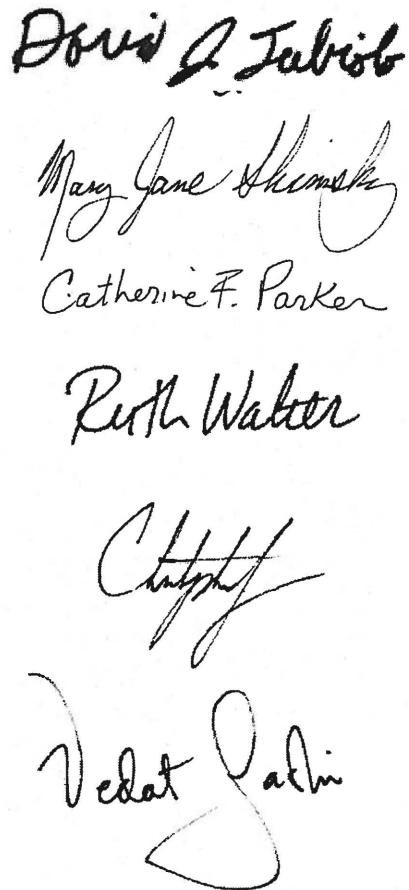 David J. Tubiolo
Mary Jane Shimsky
Catherine F. Parker
Ruth Walter
Vedat Gashi